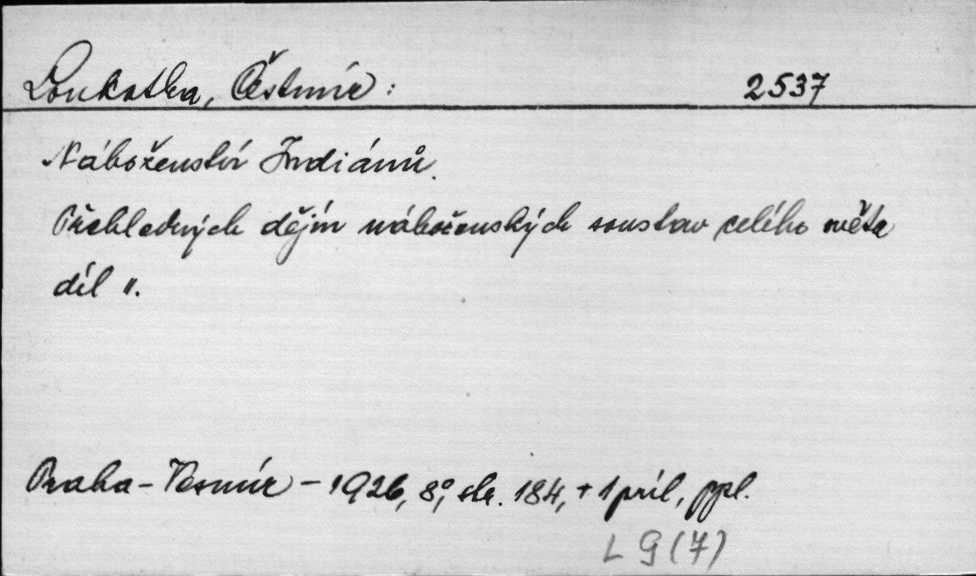 Loukotka, Čestmír: 2537
Náboženství Indiánů.
Přehledných dějin náboženských soustav celého světa
díl II.
Praha - Vesmír - 1926, 8°, str. 184, + 1 příl, ppl.
L 9 (7)